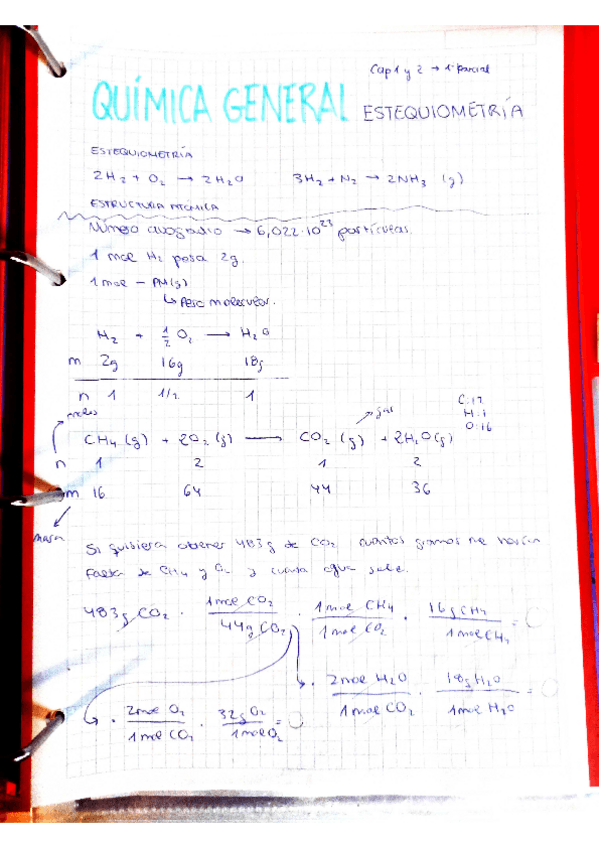 Cap 1 y 2 → 1º Parcial
QUÍMICA GENERAL ESTEQUIOMETRÍA
ESTEQUIOMETRÍA
2H₂ + O₂ → 2H₂O 3H₂ + N₂ → 2NH₃ (g)
ESTRUCTURA ATÓMICA
Número avogadro → 6,022·10²³ partículas.
1 mol H₂ pesa 2g.
1 mol – PM(g)
↳ Peso molecular.
H₂ + 1/2 O₂ → H₂O
m 2g 16g 18g
n 1 1/2 1
moles
gas
C:12
H:1
O:16
CH₄(g) + 2O₂(g) → CO₂(g) + 2H₂O(g)
n 1 2 1 2
m 16 64 44 36
masa
Si quisiera obtener 483g de CO₂ cuántos gramos me harían
falta de CH₄ y O₂ y cuanta agua sale.
483g CO₂ · 1mol CO₂/44g CO₂ · 1mol CH₄/1mol CO₂ · 16g CH₄/1mol CH₄ =
· 2mol H₂O/1mol CO₂ · 18g H₂O/1mol H₂O =
· 2mol O₂/1mol CO₂ · 32g O₂/1mol O₂ =